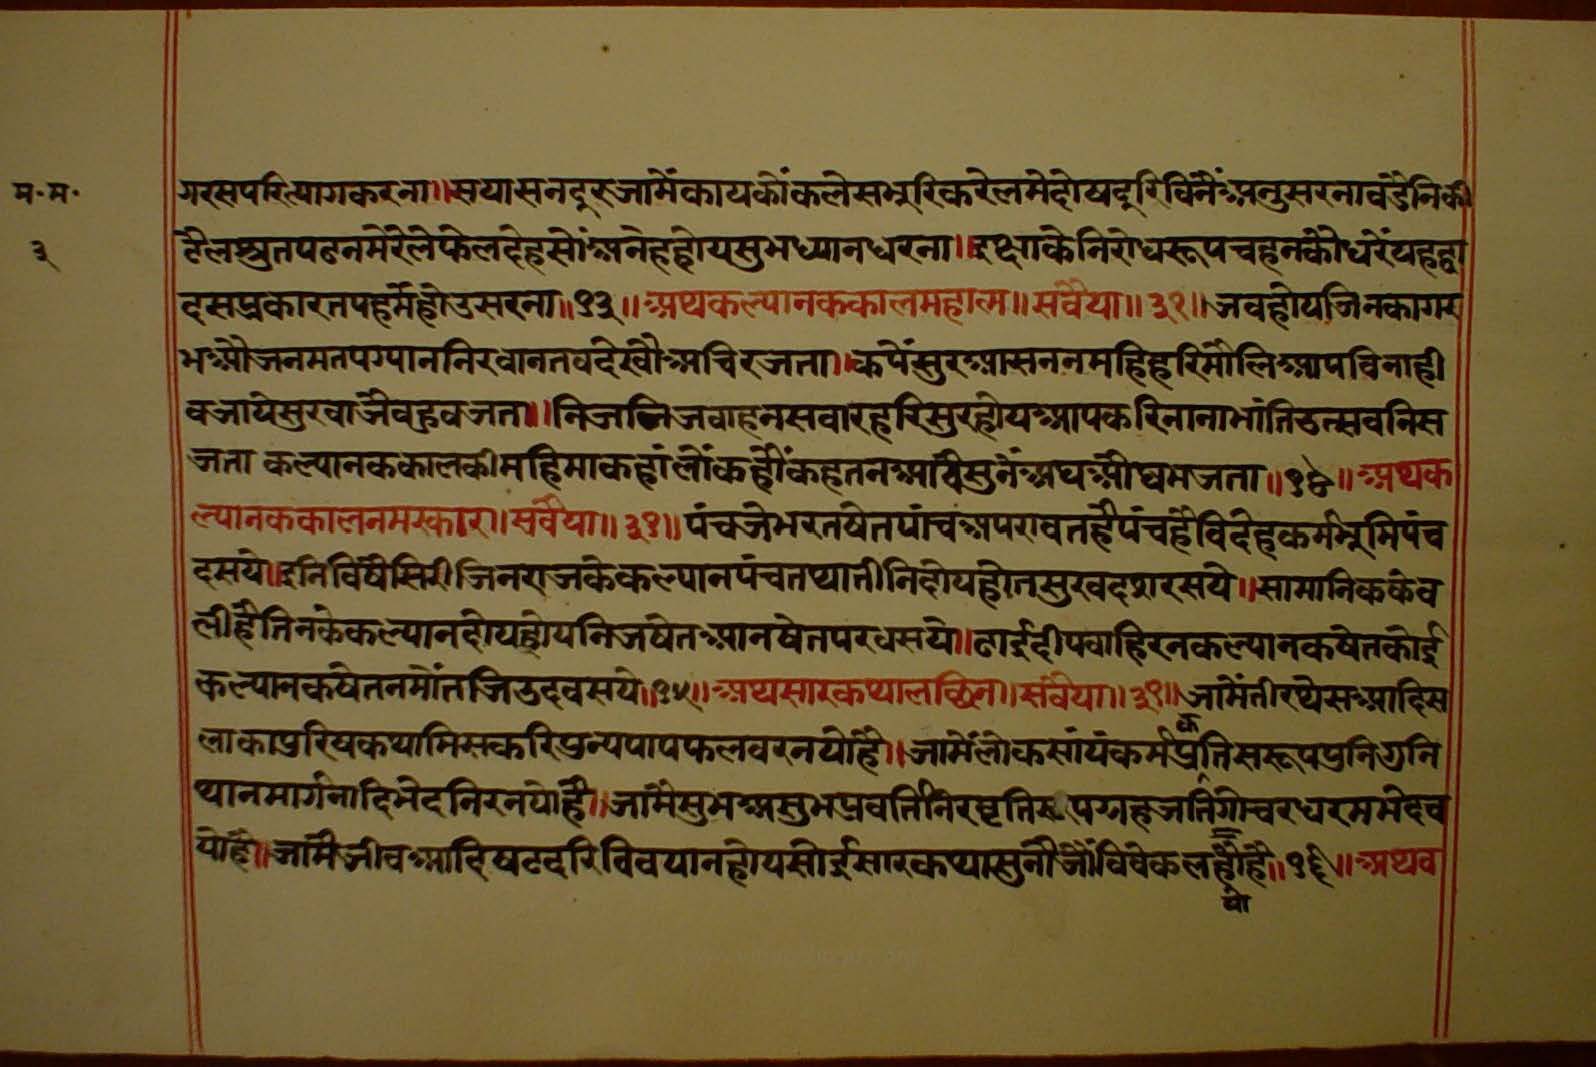 म॰म॰
३
गरसपरित्यागकरना॥सयासनदूरजामेंकायकोंकलेसभूरिकरेलमेदोयदूरिविनैंअनुसरनावंडेनिकी
टैलस्रुतपठनमेरेलेफेलदेहसोंअनेहहोयसुभध्यानधरना॥इछाकेनिरोधरूपचहनकौधरेंयहद्वा
दसप्रकारतपहमैंहोउसरना॥१३॥अथकल्यानककालमहात्म॥सवैया॥३१॥जवहोयजिनकागर
भऔजनमतपग्याननिरवानतवदेखौअचिरजता॥कपेंसुरआसननमहिहरिमौलिआपविनाही
वजायेसुरवाजैवहुवजता॥निजनिजवाहनसवारहरिसुरहोयआपकरिनानाभांतिउत्सवनिस
जता कल्यानककालकीमहिमाकहांलोंकहौंकहतनआवैसुनेंअघओघभजता॥१४॥अथक
ल्यानककालनमस्कार॥सवैया॥३१॥पंचजेभरतषेतपांचअपरावतहैपंचहैविदेहकर्मभूमिपंच
दसये॥इनिविषैसिरीजिनराजकेकल्यानपंचतथातीनिदोयहोतसुखदशरसये॥सामानिककेव
लीहैतिनकेकल्यानदोयहोयनिजषेतआनषेतपरवसये॥ठाईदीपवाहिरनकल्यानकषेतकोई
कल्यानकषेतनमोंतजिउदवसये॥१५॥अथसारकथालछिन॥सवैया॥३१॥जामेंतीरथेसआदिस
लाकापुरिषकथामिसकरिपुन्यपापफलवरनयोहै॥जामेंलोकसांयंकर्मप्रक्रतिसरूपपुनिगुनि
थानमार्गनादिभेदनिरनयोहै॥जामैसुभअसुभप्रवर्तिनिरवृतिरूपग्रहजतिगोचरधरमभेदव
योहै॥जामैजीवआदिषटदरिविवयानहोयसोईसारकथासुनौजौंविवेकलहौहै॥१६॥अथव
यो